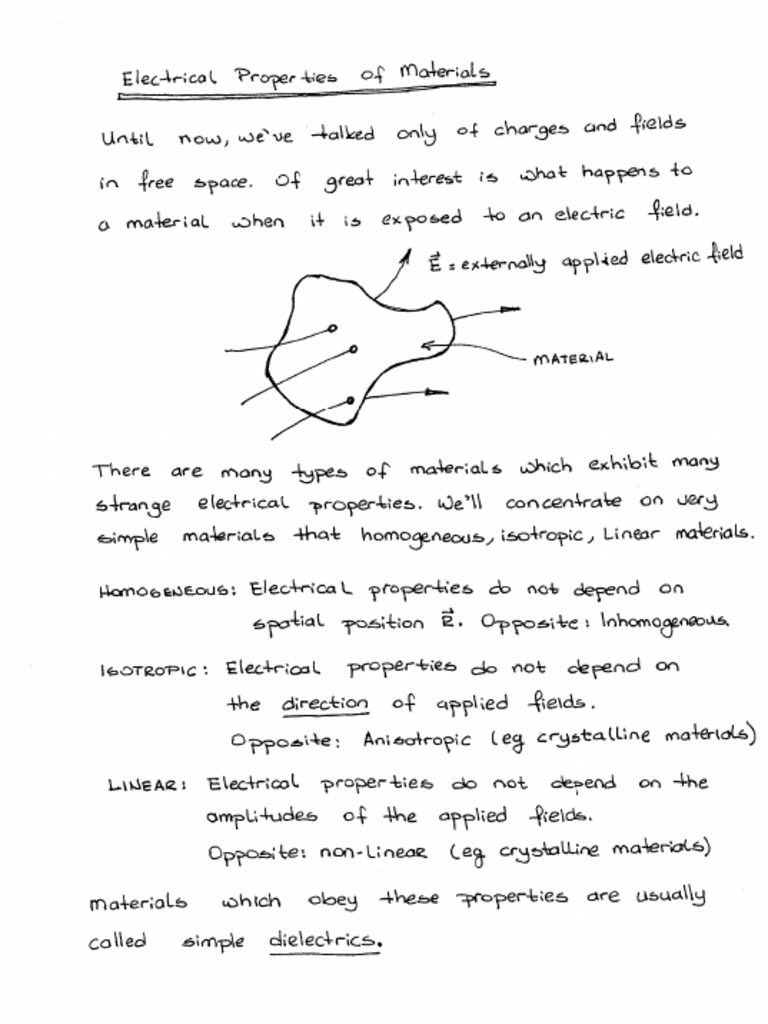 Electrical Properties of Materials
Until now, we've talked only of charges and fields
in free space. Of great interest is what happens to
a material when it is exposed to an electric field.
E⃗ = externally applied electric field
MATERIAL
There are many types of materials which exhibit many
strange electrical properties. We'll concentrate on very
simple materials that homogeneous, isotropic, Linear materials.
HOMOGENEOUS: Electrical properties do not depend on
spatial position R⃗. Opposite: Inhomogeneous.
ISOTROPIC: Electrical properties do not depend on
the direction of applied fields.
Opposite: Anisotropic (eg crystalline materials)
LINEAR: Electrical properties do not depend on the
amplitudes of the applied fields.
Opposite: non-Linear (eg crystalline materials)
materials which obey these properties are usually
called simple dielectrics.